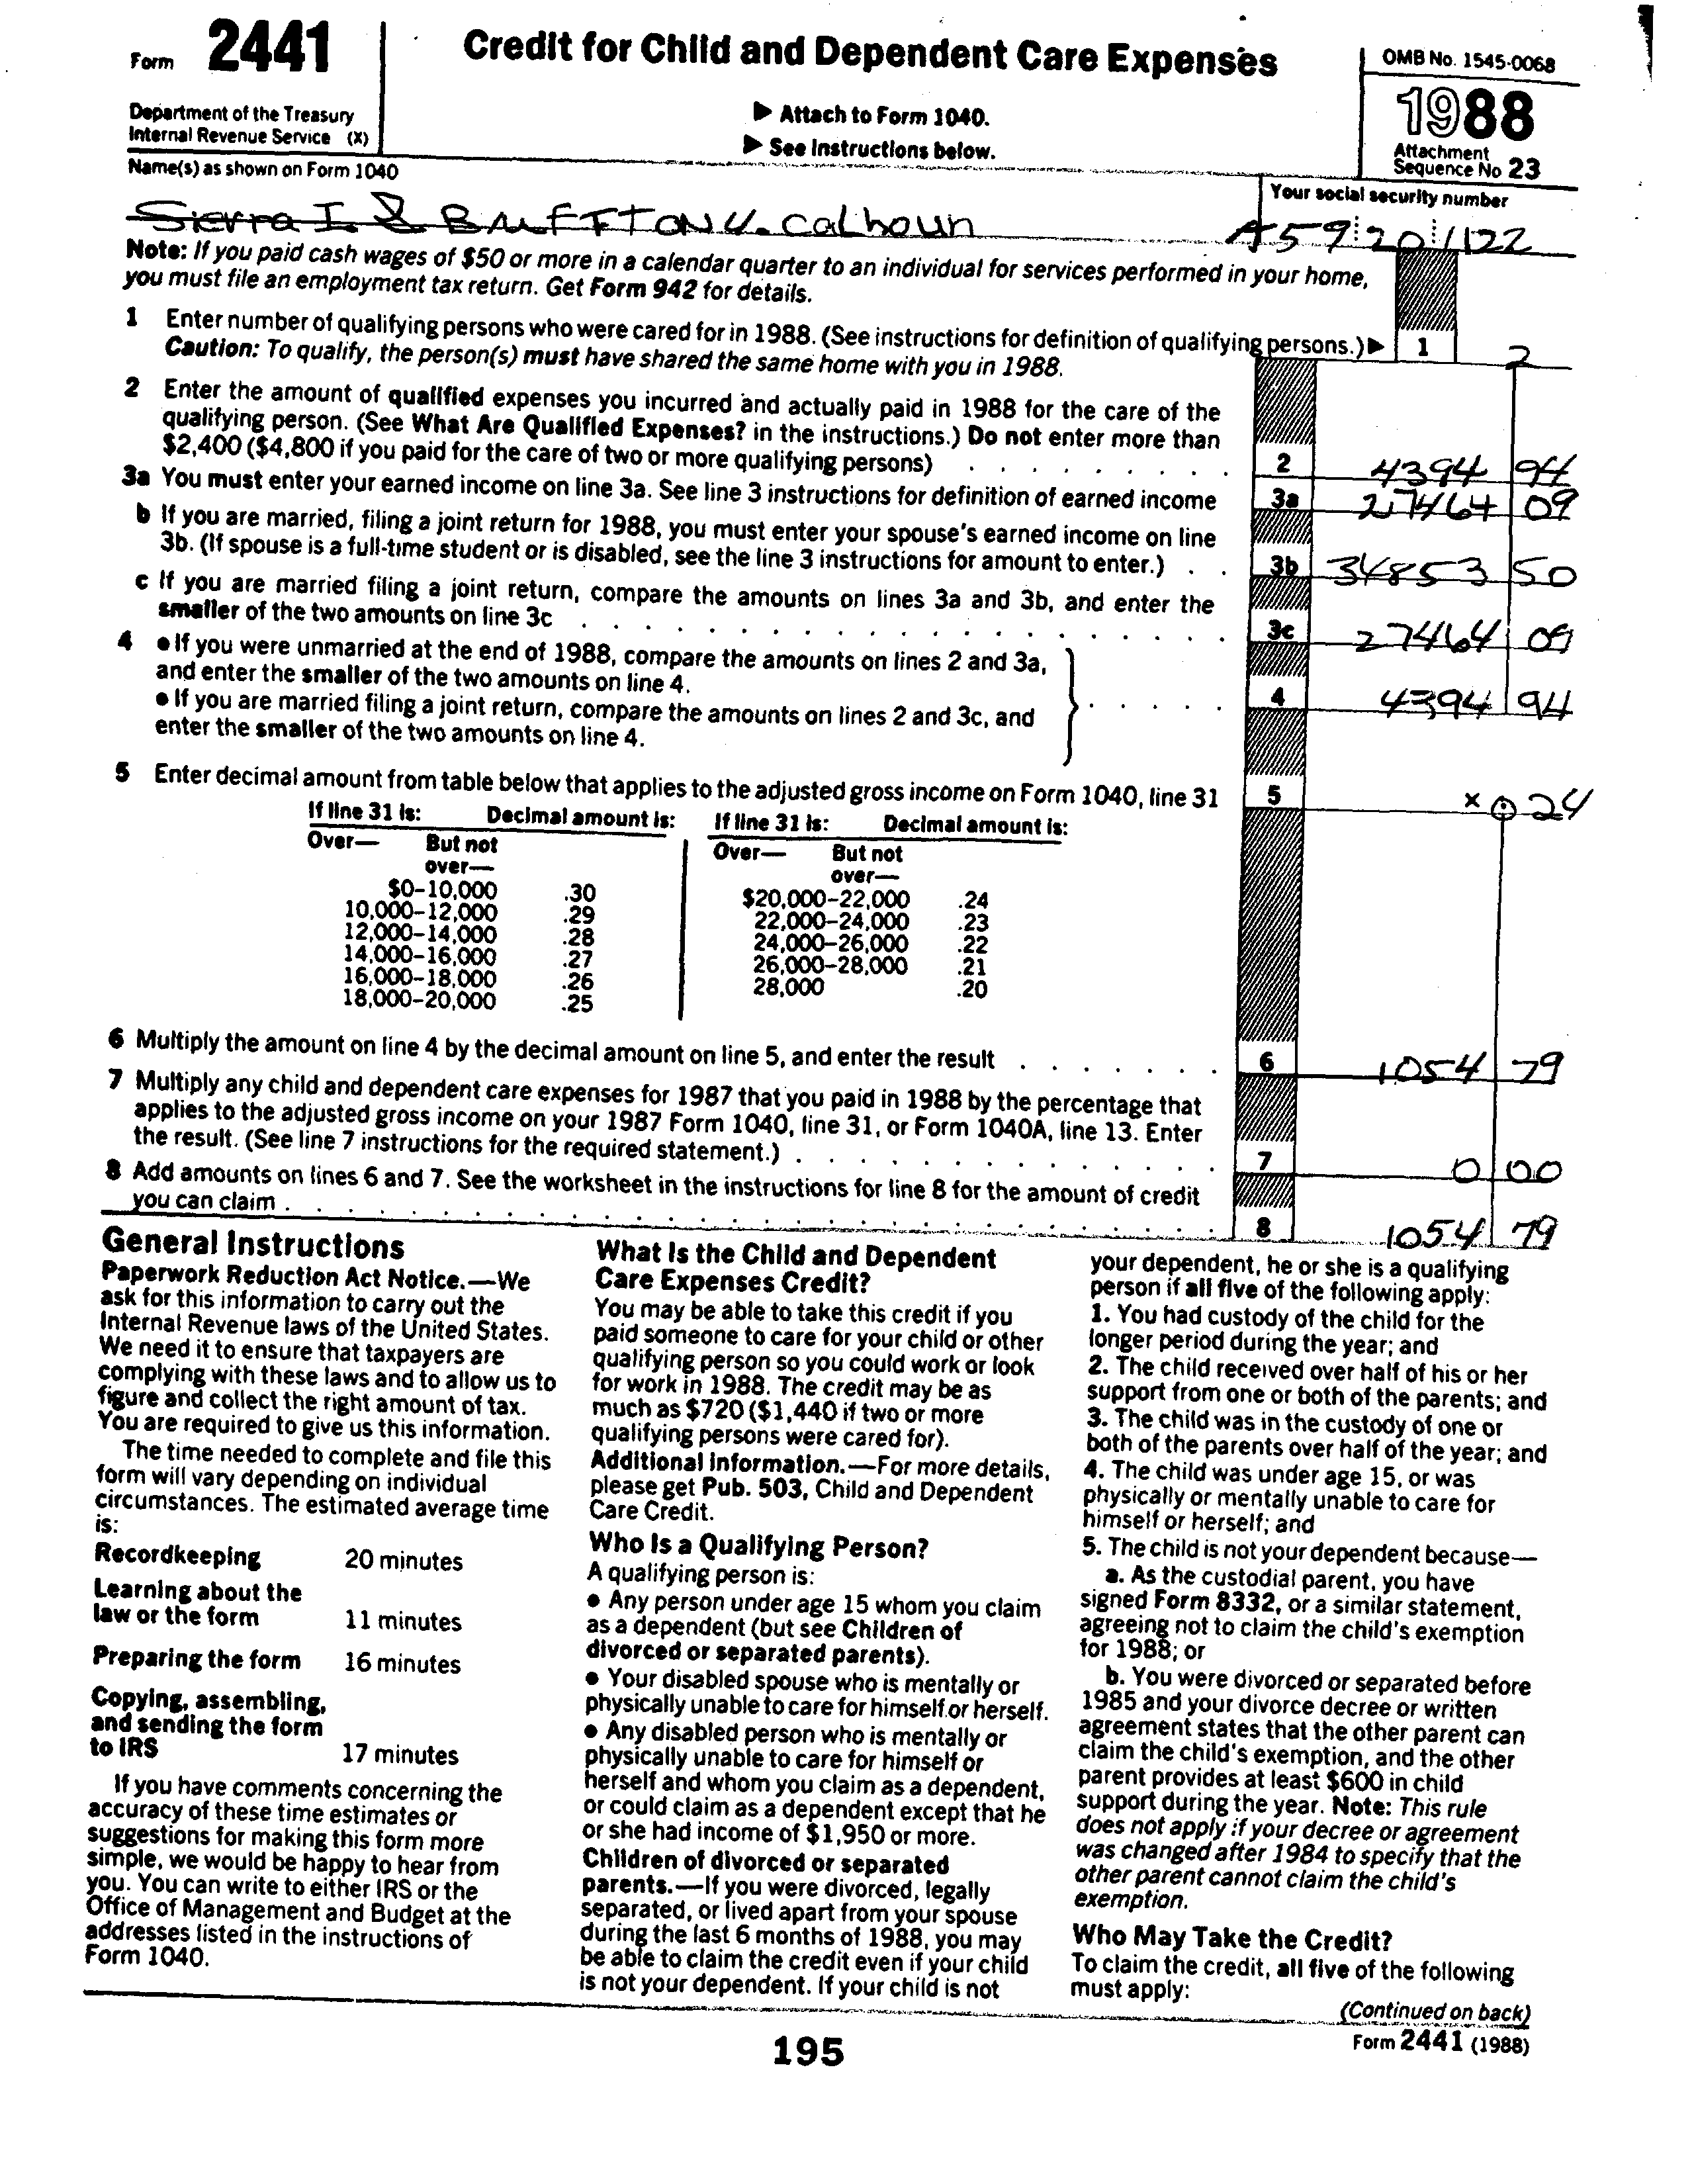 Form 2441
Department of the Treasury
Internal Revenue Service (X)
Credit for Child and Dependent Care Expenses
▶ Attach to Form 1040.
▶ See Instructions below.
OMB No. 1545-0068
1988
Attachment
Sequence No 23
Name(s) as shown on Form 1040
Your social security number
Sierra I. & BMFFTON U. Calhoun
A59 20 1122
Note: If you paid cash wages of $50 or more in a calendar quarter to an individual for services performed in your home,
you must file an employment tax return. Get Form 942 for details.
1 Enter number of qualifying persons who were cared for in 1988. (See instructions for definition of qualifying persons.) ▶ 1 2
Caution: To qualify, the person(s) must have shared the same home with you in 1988.
2 Enter the amount of qualified expenses you incurred and actually paid in 1988 for the care of the
qualifying person. (See What Are Qualified Expenses? in the instructions.) Do not enter more than
$2,400 ($4,800 if you paid for the care of two or more qualifying persons) . . . . . . . . . 2 4394 94
3a You must enter your earned income on line 3a. See line 3 instructions for definition of earned income 3a 27464 09
b If you are married, filing a joint return for 1988, you must enter your spouse's earned income on line
3b. (If spouse is a full-time student or is disabled, see the line 3 instructions for amount to enter.) . . 3b 34853 50
c If you are married filing a joint return, compare the amounts on lines 3a and 3b, and enter the
smaller of the two amounts on line 3c . . . . . . . . . . . . . . . . . . . . . 3c 27464 09
4 ● If you were unmarried at the end of 1988, compare the amounts on lines 2 and 3a,
and enter the smaller of the two amounts on line 4.
● If you are married filing a joint return, compare the amounts on lines 2 and 3c, and
enter the smaller of the two amounts on line 4. . . . . . 4 4394 94
5 Enter decimal amount from table below that applies to the adjusted gross income on Form 1040, line 31 5 × . 24
If line 31 is: Decimal amount is: If line 31 is: Decimal amount is:
Over— But not over— Over— But not over—
$0–10,000 .30 $20,000–22,000 .24
10,000–12,000 .29 22,000–24,000 .23
12,000–14,000 .28 24,000–26,000 .22
14,000–16,000 .27 26,000–28,000 .21
16,000–18,000 .26 28,000 .20
18,000–20,000 .25
6 Multiply the amount on line 4 by the decimal amount on line 5, and enter the result . . . . . . . 6 1054 79
7 Multiply any child and dependent care expenses for 1987 that you paid in 1988 by the percentage that
applies to the adjusted gross income on your 1987 Form 1040, line 31, or Form 1040A, line 13. Enter
the result. (See line 7 instructions for the required statement.) . . . . . . . . . . . . . . 7 0 00
8 Add amounts on lines 6 and 7. See the worksheet in the instructions for line 8 for the amount of credit
you can claim . . . . . . . . . . . . . . . . . . . . . . . . . . . . . . 8 1054 79
General Instructions
Paperwork Reduction Act Notice.—We
ask for this information to carry out the
Internal Revenue laws of the United States.
We need it to ensure that taxpayers are
complying with these laws and to allow us to
figure and collect the right amount of tax.
You are required to give us this information.
The time needed to complete and file this
form will vary depending on individual
circumstances. The estimated average time
is:
Recordkeeping 20 minutes
Learning about the
law or the form 11 minutes
Preparing the form 16 minutes
Copying, assembling,
and sending the form
to IRS 17 minutes
If you have comments concerning the
accuracy of these time estimates or
suggestions for making this form more
simple, we would be happy to hear from
you. You can write to either IRS or the
Office of Management and Budget at the
addresses listed in the instructions of
Form 1040.
What Is the Child and Dependent
Care Expenses Credit?
You may be able to take this credit if you
paid someone to care for your child or other
qualifying person so you could work or look
for work in 1988. The credit may be as
much as $720 ($1,440 if two or more
qualifying persons were cared for).
Additional Information.—For more details,
please get Pub. 503, Child and Dependent
Care Credit.
Who Is a Qualifying Person?
A qualifying person is:
● Any person under age 15 whom you claim
as a dependent (but see Children of
divorced or separated parents).
● Your disabled spouse who is mentally or
physically unable to care for himself or herself.
● Any disabled person who is mentally or
physically unable to care for himself or
herself and whom you claim as a dependent,
or could claim as a dependent except that he
or she had income of $1,950 or more.
Children of divorced or separated
parents.—If you were divorced, legally
separated, or lived apart from your spouse
during the last 6 months of 1988, you may
be able to claim the credit even if your child
is not your dependent. If your child is not
your dependent, he or she is a qualifying
person if all five of the following apply:
1. You had custody of the child for the
longer period during the year; and
2. The child received over half of his or her
support from one or both of the parents; and
3. The child was in the custody of one or
both of the parents over half of the year; and
4. The child was under age 15, or was
physically or mentally unable to care for
himself or herself; and
5. The child is not your dependent because—
a. As the custodial parent, you have
signed Form 8332, or a similar statement,
agreeing not to claim the child's exemption
for 1988; or
b. You were divorced or separated before
1985 and your divorce decree or written
agreement states that the other parent can
claim the child's exemption, and the other
parent provides at least $600 in child
support during the year. Note: This rule
does not apply if your decree or agreement
was changed after 1984 to specify that the
other parent cannot claim the child's
exemption.
Who May Take the Credit?
To claim the credit, all five of the following
must apply:
(Continued on back)
195
Form 2441 (1988)